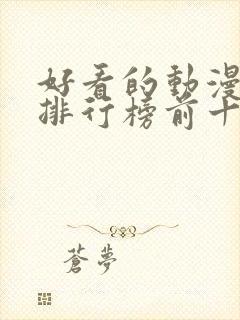 好看的動漫
排行榜前十
蒼夢